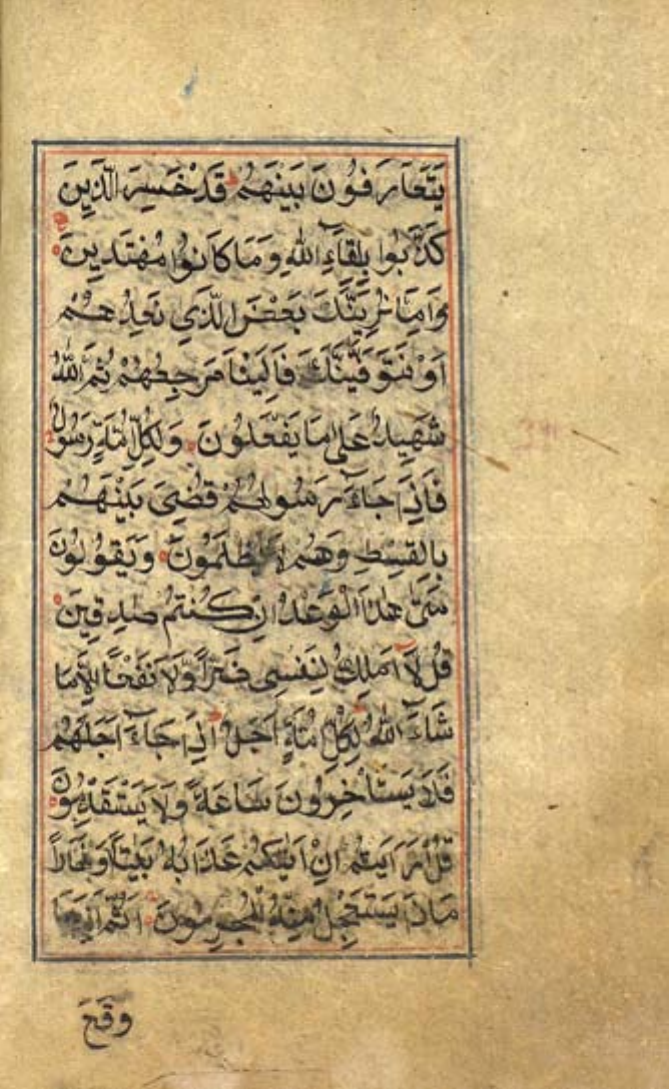 يَتَعَارَفُونَ بَيْنَهُمْ قَدْ خَسِرَ الَّذِينَ
كَذَّبُوا بِلِقَاءِ اللهِ وَمَا كَانُوا مُهْتَدِينَ
وَاِمَّا نُرِيَنَّكَ بَعْضَ الَّذِي نَعِدُهُمْ
اَوْ نَتَوَفَّيَنَّكَ فَاِلَيْنَا مَرْجِعُهُمْ ثُمَّ اللهُ
شَهِيدٌ عَلَى مَا يَفْعَلُونَ وَلِكُلِّ اُمَّةٍ رَسُولٌ
فَاِذَا جَاءَ رَسُولُهُمْ قُضِيَ بَيْنَهُمْ
بِالْقِسْطِ وَهُمْ لَا يُظْلَمُونَ وَيَقُولُونَ
مَتَى هٰذَا الْوَعْدُ اِنْ كُنْتُمْ صٰدِقِينَ
قُلْ لَا اَمْلِكُ لِنَفْسِي ضَرًّا وَلَا نَفْعًا اِلَّا مَا
شَاءَ اللهُ لِكُلِّ اُمَّةٍ اَجَلٌ اِذَا جَاءَ اَجَلُهُمْ
فَلَا يَسْتَأْخِرُونَ سَاعَةً وَلَا يَسْتَقْدِمُونَ
قُلْ اَرَاَيْتُمْ اِنْ اَتٰيكُمْ عَذَابُهُ بَيَاتًا اَوْ نَهَارًا
مَاذَا يَسْتَعْجِلُ مِنْهُ الْمُجْرِمُونَ اَثُمَّ اِذَا مَا
وَقَعَ